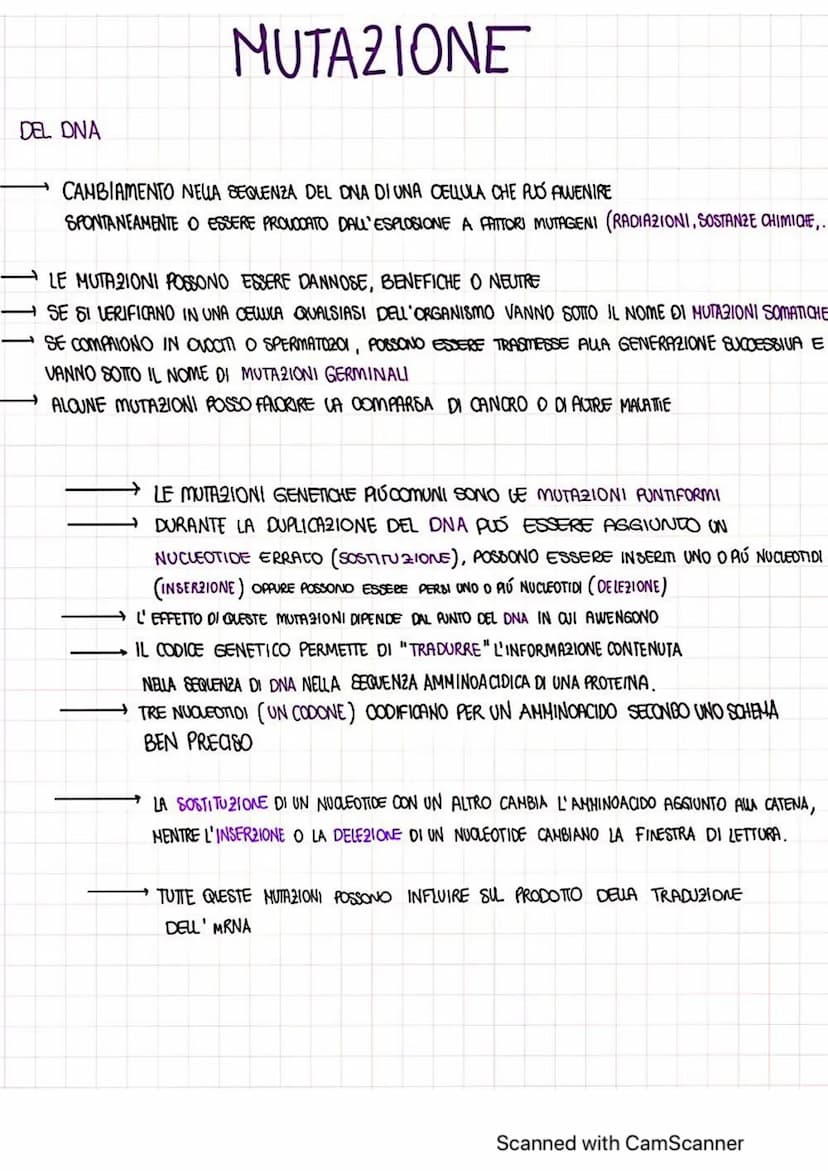 MUTAZIONE
DEL DNA
→ CAMBIAMENTO NELLA SEQUENZA DEL DNA DI UNA CELLULA CHE PUÓ AVVENIRE
SPONTANEAMENTE O ESSERE PROVOCATO DALL'ESPLOSIONE A FATTORI MUTAGENI (RADIAZIONI, SOSTANZE CHIMICHE, .
→ LE MUTAZIONI POSSONO ESSERE DANNOSE, BENEFICHE O NEUTRE
→ SE SI VERIFICANO IN UNA CELLULA QUALSIASI DELL'ORGANISMO VANNO SOTTO IL NOME DI MUTAZIONI SOMATICHE
→ SE COMPAIONO IN OVOCITI O SPERMATOZOI, POSSONO ESSERE TRASMESSE ALLA GENERAZIONE SUCCESSIVA E
VANNO SOTTO IL NOME DI MUTAZIONI GERMINALI
→ ALCUNE MUTAZIONI POSSO FAVORIRE LA COMPARSA DI CANCRO O DI ALTRE MALATTIE
→ LE MUTAZIONI GENETICHE PIÚ COMUNI SONO LE MUTAZIONI PUNTIFORMI
→ DURANTE LA DUPLICAZIONE DEL DNA PUÓ ESSERE AGGIUNTO UN
NUCLEOTIDE ERRATO (SOSTITUZIONE), POSSONO ESSERE INSERITI UNO O PIÚ NUCLEOTIDI
(INSERZIONE) OPPURE POSSONO ESSERE PERSI UNO O PIÚ NUCLEOTIDI (DELEZIONE)
→ L'EFFETTO DI QUESTE MUTAZIONI DIPENDE DAL PUNTO DEL DNA IN CUI AVVENGONO
→ IL CODICE GENETICO PERMETTE DI "TRADURRE" L'INFORMAZIONE CONTENUTA
NELLA SEQUENZA DI DNA NELLA SEQUENZA AMMINOACIDICA DI UNA PROTEINA.
→ TRE NUCLEOTIDI (UN CODONE) CODIFICANO PER UN AMMINOACIDO SECONDO UNO SCHEMA
BEN PRECISO
→ LA SOSTITUZIONE DI UN NUCLEOTIDE CON UN ALTRO CAMBIA L'AMMINOACIDO AGGIUNTO ALLA CATENA,
MENTRE L'INSERZIONE O LA DELEZIONE DI UN NUCLEOTIDE CAMBIANO LA FINESTRA DI LETTURA.
→ TUTTE QUESTE MUTAZIONI POSSONO INFLUIRE SUL PRODOTTO DELLA TRADUZIONE
DELL' MRNA
Scanned with CamScanner